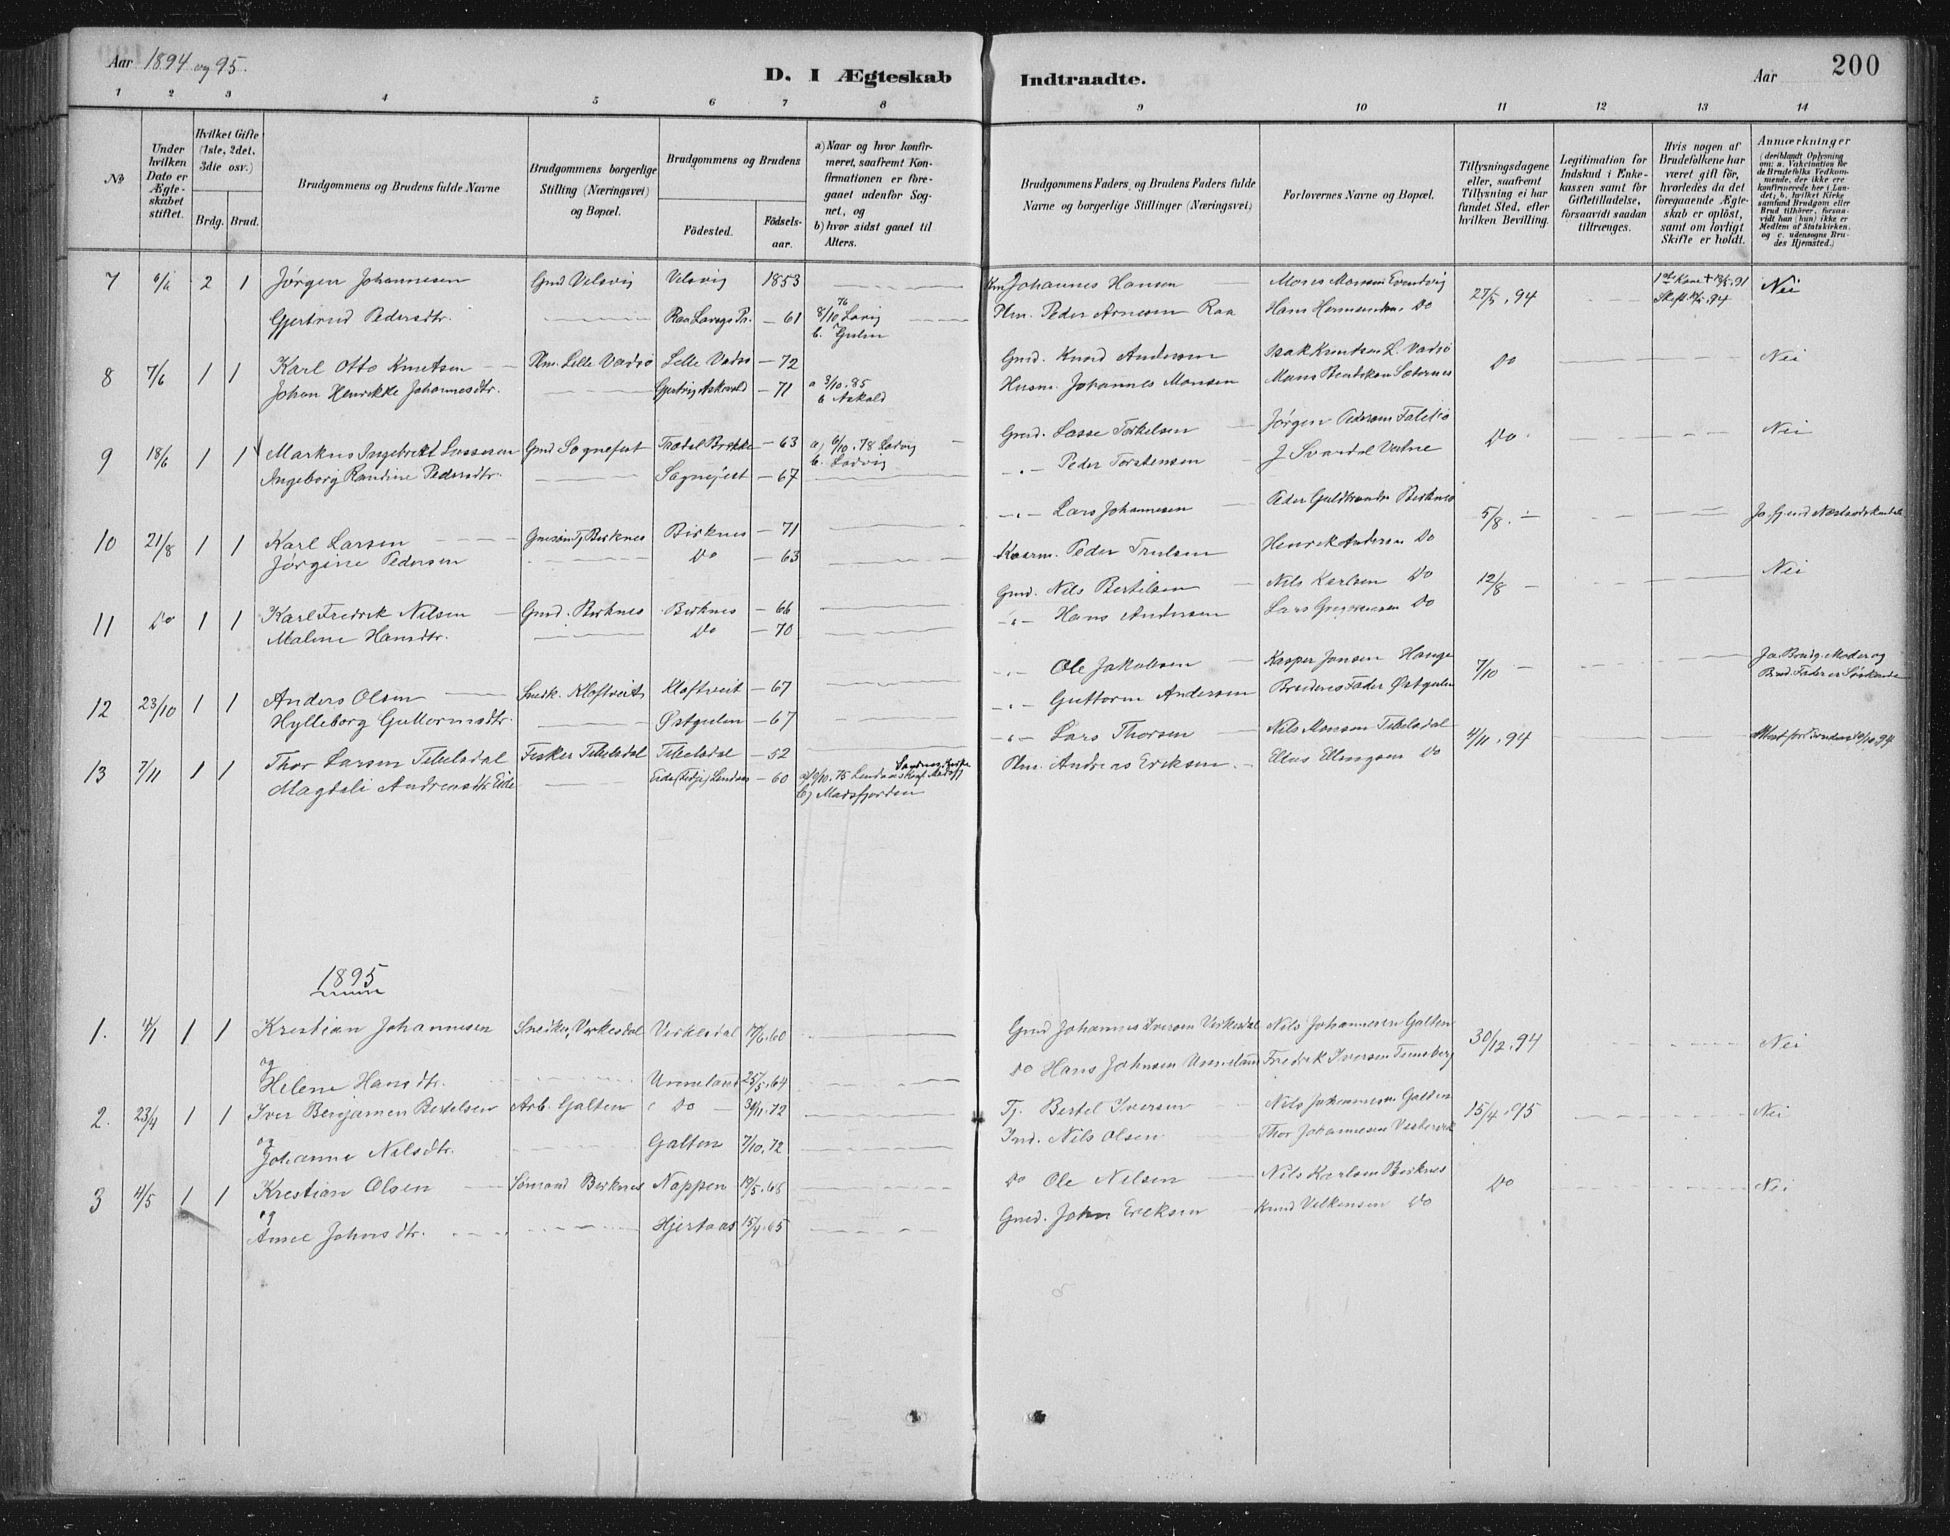 Aar 1894 og 95.
D. I Ægteskab Indtraadte.
Aar
200
1 2 3 4 5 6 7 8 9 10 11 12 13 14
No
Under hvilken Dato er Ægteskabet stiftet.
Hvilket Gifte (1ste, 2det, 3die osv.)
Brdg. Brud.
Brudgommens og Brudens fulde Navne
Brudgommens borgerlige Stilling (Næringsvei) og Bopæl.
Brudgommens og Brudens
Fødested. Fødselsaar.
a) Naar og hvor konfirmeret, saafremt Konfirmationen er foregaaet udenfor Sognet, og
b) hvor sidst gaaet til Alters.
Brudgommens Faders, og Brudens Faders fulde Navne og borgerlige Stillinger (Næringsvei)
Forlovernes Navne og Bopæl.
Tillysningsdagene eller, saafremt Tillysning ei har fundet Sted, efter hvilken Bevilling.
Legitimation for Indskud i Enkekassen samt for Giftetilladelse, forsaavidt saadan tiltrænges.
Hvis nogen af Brudefolkene har været gift før, hvorledes da det foregaaende Ægteskab er opløst, samt om lovligt Skifte er holdt.
Anmærkninger
(deriblandt Oplysning om: a. Vakcination for de Brudefolks Vedkommende, der ikke ere konfirmerede her i Landet; b. hvilket Kirkesamfund Brudgom eller Brud tilhører, forsaavidt han (hun) ikke er Medlem af Statskirken, og c. udensogns Brudes Hjemsted.)
7 6/6 2 1 Jørgen Johannesen Gmd Velsvig Velsvig 1853 Johannes Hansen Moses Monsen Evendvig 27/5. 94 Nei
Gjertrud Pedersdtr. Raa Lavigs Pr. – 61 8/10 76 Lavig b. Gulen Plm. Peder Arnesen Raa Hans Hermansen Do
8 7/6 1 1 Karl Otto Knutsen Plm. Lille Vadsø Lille Vadsø – 72 Gmd. Knud Andersen Isak Knutsen L. Vadsø Do Nei
Johan Henrikke Johannesdtr. Askvold – 71 a 3/10. 85 b Askvold Husm. Johannes Monsen Mons
9 18/6 1 1 Markus Ingebrikt Lassesen Gmd Sognefest – 63 a) 6/10. 78 Ladvig b. Ladvig Gmd. Lasse Torkelsen Jørgen Pedersen Do. Nei
Ingeborg Randine Pedersdtr. Sognefest – 67 – " – Peder Torstensen J Svardal
10 21/8 1 1 Karl Larsen Birknes Birknes – 71 – " – Lars Johannesen Peder Guldbrands Birknes 5/8. –
Jørgine Pedersen Do – 63 Peder Trulsen Henrik Andersen Do
11 Do 1 1 Karl Fredrik Nilsen Gmd. Birknes Birknes – 66 Gmd. Nils Bertilsen Nils Karlsen Do 12/8 – Nei
Maline Hansdtr. Do – 70 – " – Hans Andersen Lars Gregoriussen Do
12 23/10 1 1 Anders Olsen Snedk. Kloftveit Kloftveit – 67 – " – Ole Jakobsen Kasper Jansen Hauge 7/10 – Ja. Brudg. Moder og Brud. Fader er Søskende
Hylleborg Guttormsdtr. Østgulen – 67 – " – Guttorm Andersen Brudens Fader Østgulen
13 7/11 1 1 Thor Larsen Tekelsdal Fisker Tekelsdal Tekelsdal – 52 – " – Lars Thorsen Nils Monsen Tekelsdal 4/11. 94
Magdeli Andreasdtr Eide – 60 b) Masfjorden Plm. Andreas Eriksen. Ellingsen Do
1895
1. 4/1 1 1 Kristian Johannesen Snedker, Virkesdal Virkesdal 17/6. 60 Gmd Johannes Iversen Virkesdal Nils Johannesen Galten 30/12. 94 Nei
og
Helene Hansdtr. Unneland 25/5. 64 Do Hans Johnsen Unneland Fredrik Iversen
2. 23/4 1 1 Iver Benjamen Bertelsen Arb. Galten Do Tj. Bertel Iversen Nils Johannesen Galten 15/4. 95 Nei
og
Johanne Nilsdtr. Galten 7/10. 72 Ind. Nils Olsen Thor Johannesen
3 4/5 1 1 Kristian Olsen Sømand Birknes Nappen Do Ole Nilsen Nils Karlsen Birknes Do Nei
og
Anne Johnsdtr. Hjertaas 15/4. 65 Gmd. John Eriksen Knud Velkensen Do